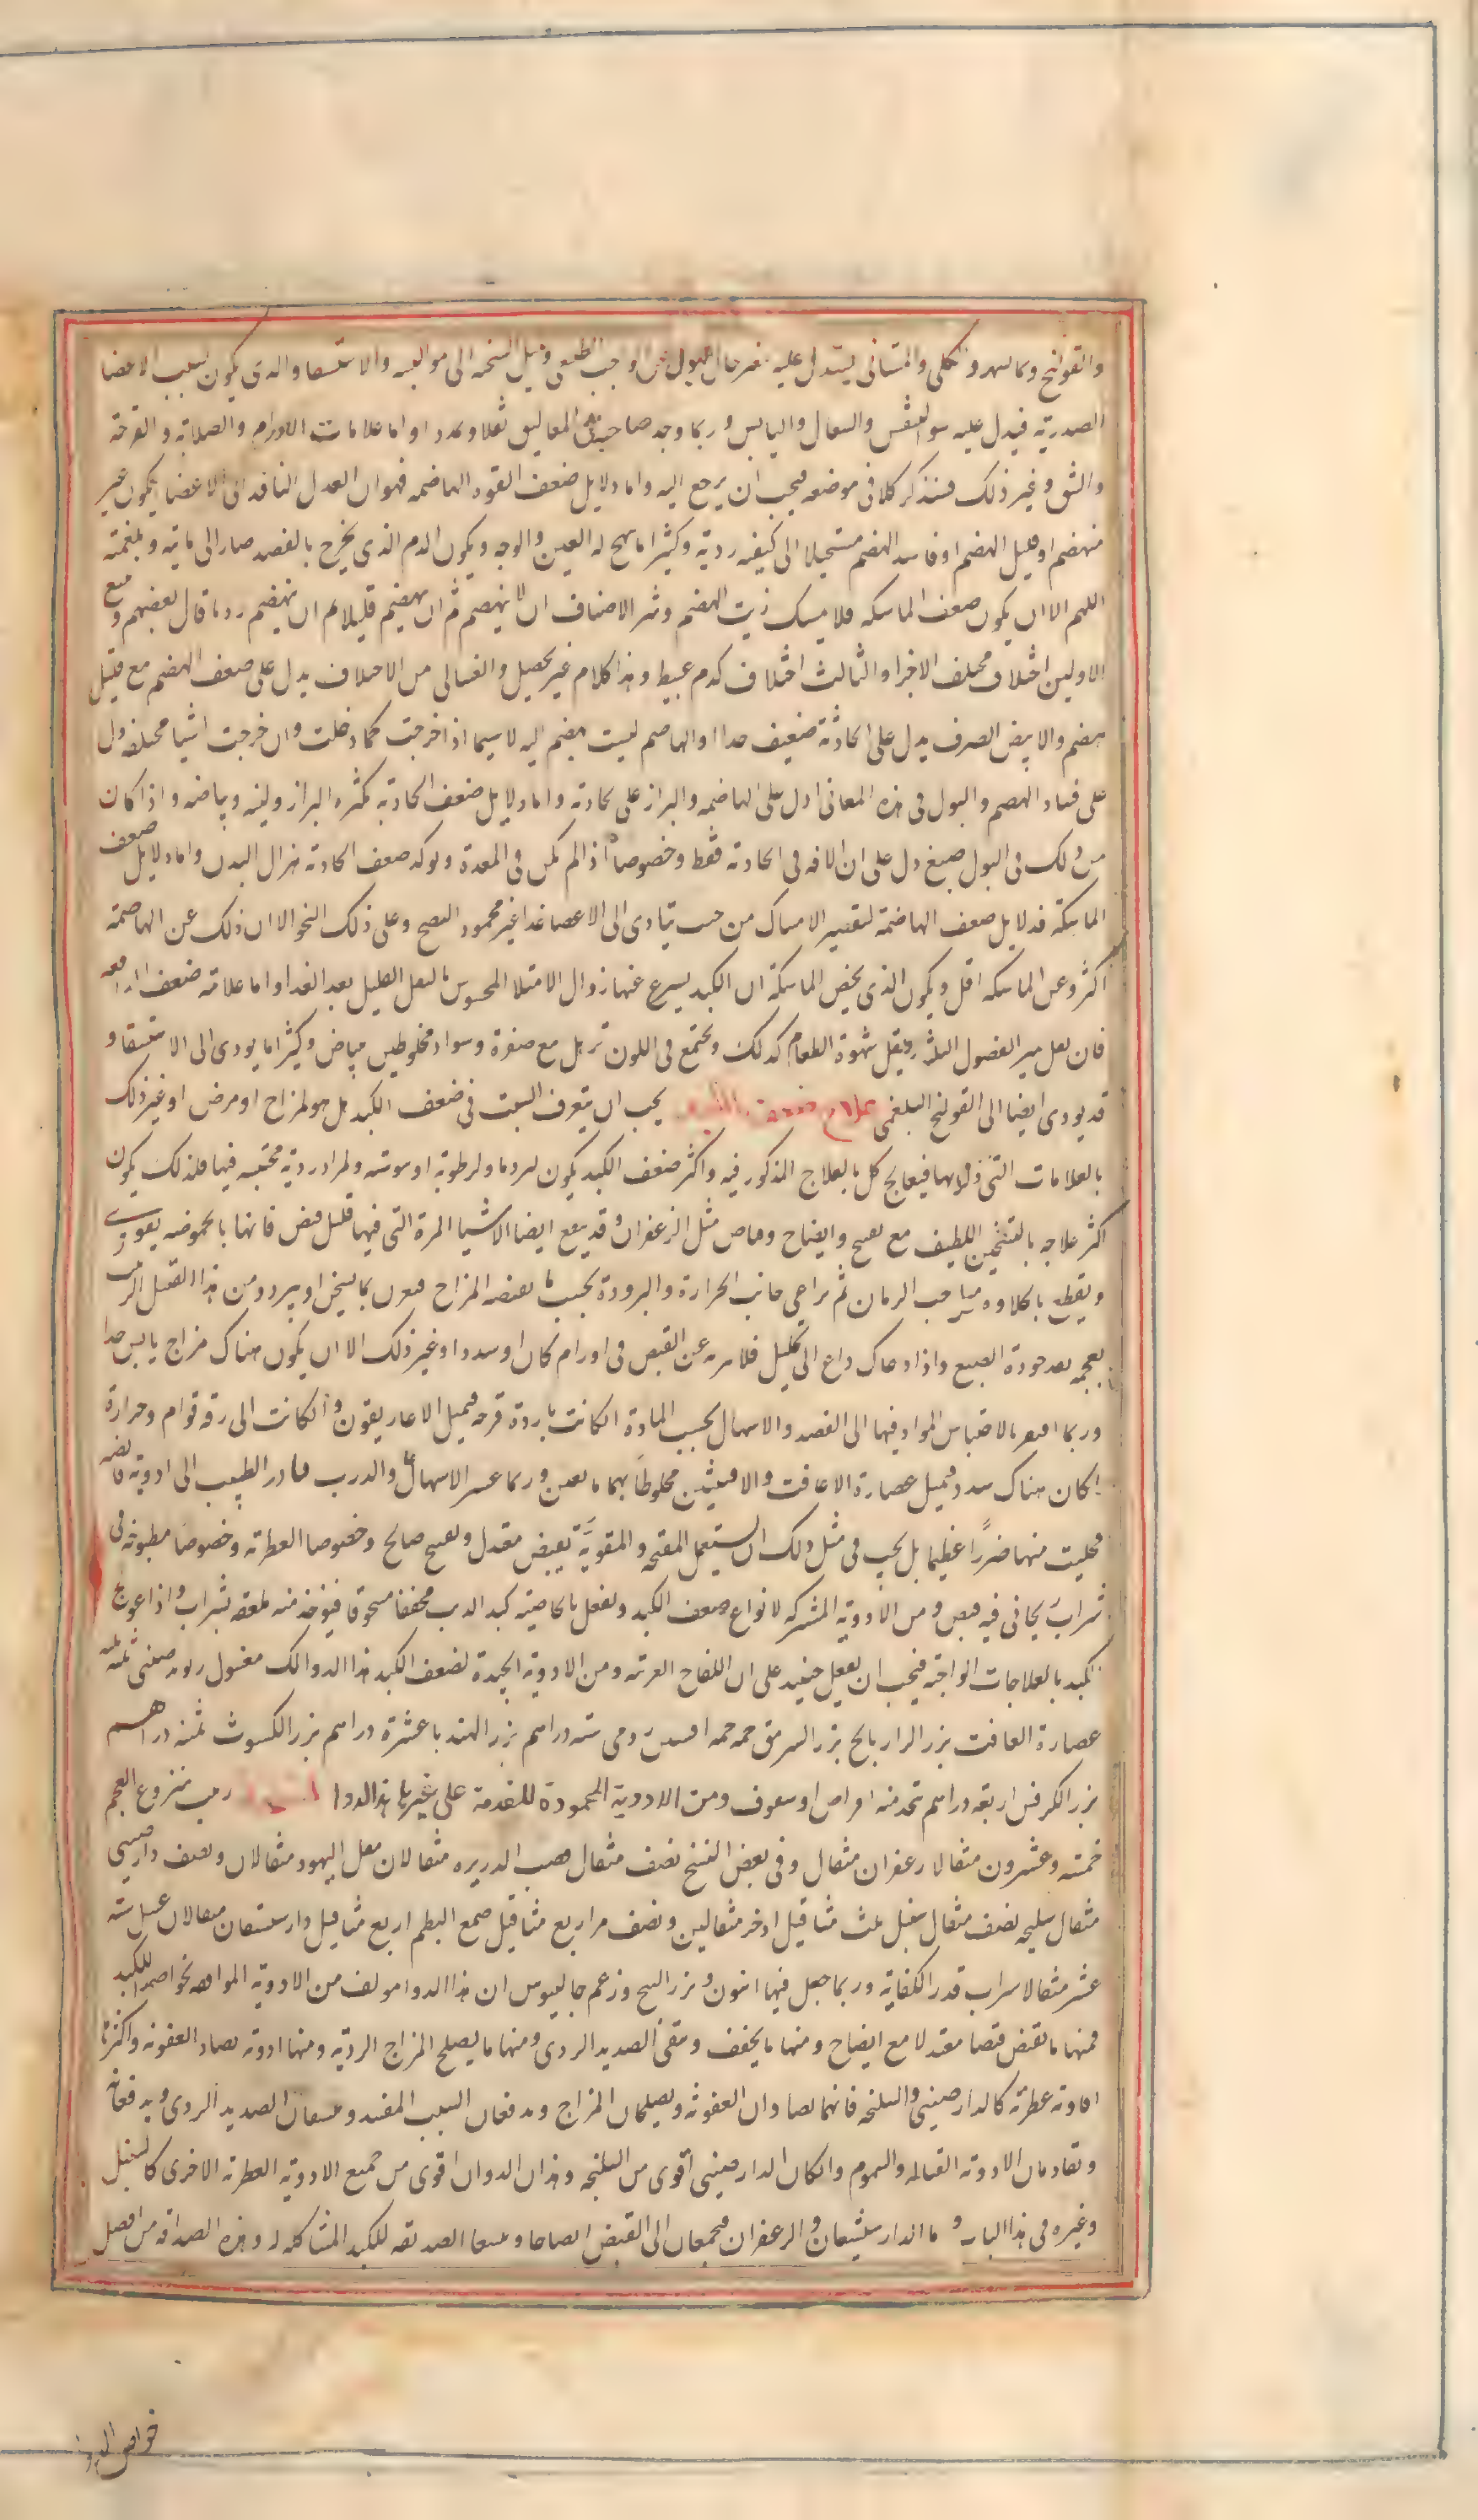 والقولنج وكاليهر والكلى والمثانى يستدل عليه بتغير حال البول عن الواجب الطبعى وميل السحنه الى سوء القنيه والاستسقا والذى يكون بسبب الاعضا
الصدريه فيدل عليه سو التنفس والسعال واليابس وربما وجد صاحبه فى المعاليق ثقلا وتمددا واما علامات الاورام والصلابه والقرحة
والشق وغير ذلك فسنذكر كلا فى موضعه فيجب ان يرجع اليه واما دلايل ضعف القوه الهاضمه فهو ان الغذا النافد الى الاعضا يكون غير
منهضم او قليل الهضم او فاسد الهضم مستحيلا الى كيفيه رديه وكثيرا ما يهيج له العين والوجه ويكون الدم الذى يخرج بالفصد صار الى مائيه وبلغميه
اللهم الا ان يكون ضعف الماسكه فلا يمسك ريث الهضم وشر الاصناف ان لا ينهضم ثم ان ينهضم قليلا ثم ان ينهضم رديا قال بعضهم ويتبع
الاولين اختلاف مختلف الاجزا والثالث اختلاف كدم عبيط وهذا كلام غير محصل والغسالى من الاختلاف يدل على ضعف الهضم مع قليل
هضم والابيض الصرف يدل على الجاذبة ضعيف جدا والهاضم ليست تهضم البته لا سيما اذا خرجت كما دخلت وان خرجت اشيا مختلفه دل
على فساد الهضم والبول فى هذه المعانى ادل على الهاضمه والبراز على الجاذبه واما دلايل ضعف الجاذبه كثره البراز ولينه وبياضه واذا كان
مع ذلك فى البول صبغ دل على ان الافه فى الجاذبه فقط وخصوصا اذا لم يكن فى المعدة ويوكد ضعف الجاذبه هزال البدن واما دلايل ضعف
الماسكة فدلايل ضعف الهاضمة لتقصير الامساك من حيث يتادى الى الاعضا غذا غير محمود النضج وعلى ذلك النحو الا ان ذلك عن الهاضمة
اكثر وعن الماسكه اقل ويكون الذى يخص الماسكة ان الكبد يسرع عنها زوال الامتلا المحسوس بالثقل القليل بعد الغذا واما علامة ضعف الدافعه
فان يقل تميز الفضول الثلثه ويقل شهوة الطعام كذلك ويجتمع فى اللون ترهل مع صفرة وسواد مخلوطين ببياض وكثيرا ما يودى الى الاستسقا و
قد يودى ايضا الى القولنج البلغمى علاج ضعف الكبد يجب ان يتعرف السبب فى ضعف الكبد هل هو لمزاج او مرض او غير ذلك
بالعلامات التى ذكرناها فيعالج كل بالعلاج المذكور فيه واكثر ضعف الكبد يكون لبرد ما ولرطوبه او يبوسه ولمرار رديه محتبسه فيها فلذلك يكون
اكثر علاجه بالتسخين اللطيف مع تفتيح وانضاج وقابض مثل الزعفران وقد ينفع ايضا الاشيا المرة التى فيها قليل قبض فانها بالحموضه يقوى
ويقطع بالحلاوه مثل حب الرمان ثم يراعى جانب الحرارة والبرودة بحسب ما يقتضيه المزاج فيقرن بما يسخن او يبرد ومن هذا القبيل الزبيب
بعجمه بعد جودة المضغ واذا دعاك داع الى تحليل فلا تعره عن القبض فى اورام كان او سدد او غير ذلك الا ان يكون هناك مزاج يابس جدا
وربما افتقر بالاحتباس المواد فيها الى الفصد والاسهال بحسب المادة ان كانت باردة لزجه فبمثل الاغاريقون وان كانت الى رقه قوام وحرارة
ان كان هناك سدد فبمثل عصارة الاغافت والافسنتين مخلوطا بهما ما يعين وربما عسر الاسهال والذرب فبادر الطبيب الى ادويه قابضه
فجلبت منها ضررًا عظيما بل يجب فى مثل ذلك ان يستعمل المفتحه والمقويه بقبض معتدل وتفتيح صالح وخصوصا العطريه وخصوصا مطبوخه فى
شراب ريحانى فيه قبض ومن الادويه المشتركه لانواع ضعف الكبد وتفعل بالخاصيه كبد الذيب مجففا مسحوقا فيوخذ منه ملعقه بشراب واذا عولج
الكبد بالعلاجات الواجبه فيجب ان يقبل حينيذ على ان اللقاح العربيه ومن الادويه الجيدة لضعف الكبد هذا الدوا لك مغسول راوند صينى ثلثه
عصارة الغافت بزر الرازيانج بزر السرمق خمسه خمسه افسنتين رومى سته دراهم بزر الهندبا عشرة دراهم بزر الكشوث ثمنيه دراهم
بزر الكرفس اربعه دراهم يتخذ منه اقراص او سفوف ومن الادوية المحمودة المقدمة على غيرها هذا الدوا زبيب منزوع العجم
خمسه وعشرون مثقالا زعفران مثقال وفى بعض النسخ نصف مثقال قصب الذريره مثقالان مقل اليهود مثقالان ونصف دارصينى
مثقال سليخه نصف مثقال سنبل ثلث مثاقيل اذخر مثقالين ونصف مر اربع مثاقيل صمغ البطم اربع مثاقيل دارشيشعان مثقالان عسل سته
عشر مثقالا شراب قدر الكفاية وربما جعل فيها افيون وبزر البنج وزعم جالينوس ان هذا الدوا مولف من الادويه الموافقه بخواصها للكبد
فمنها ما تقبض قبضا معتدلا مع انضاج ومنها ما يجفف وينقى الصديد الردى ومنها ما يصلح المزاج الرديه ومنها ادويه تضاد العفونه واكثرها
افاويه عطريه كالدارصينى والسليخه فانهما يضادان العفونه ويصلحان المزاج ويدفعان السبب المفسد وينشفان الصديد الردى ويدفعانه
ويقاومان الادويه القتاله والسموم وان كان الدارصينى اقوى من السليخه وهذان الدوان اقوى من جميع الادويه العطريه الاخرى كالسنبل
وغيره فى هذا الباب واما الدارشيشعان والزعفران فيجمعان الى القبض انضاجا الصديقه للكبد المشاكله له وهذه الصداقه من افضل
خواص الدوا